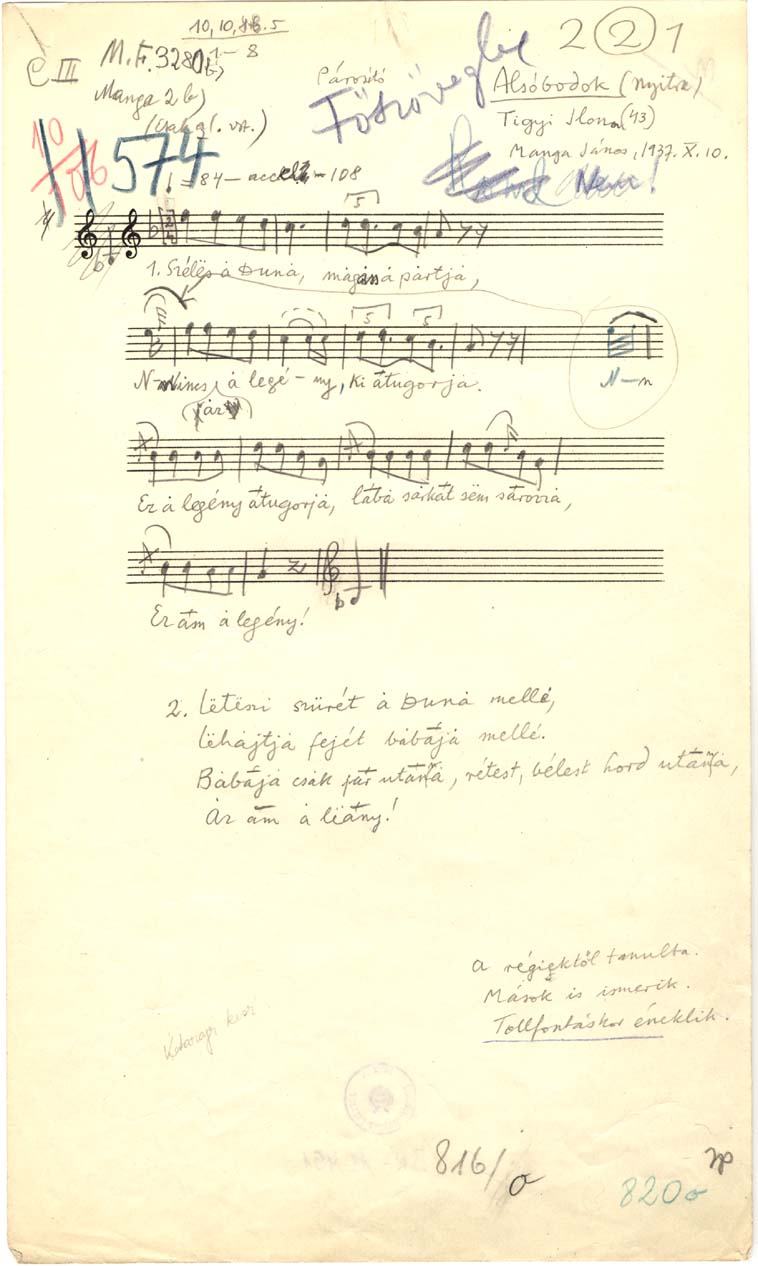 10, 10, 8b. 5
2 2 1
C III
M.F. 3280b) 1–8
Manga 2 b)
Párosító
Főszövegbe
Alsóbodok (Nyitra)
Tigyi Ilona (43)
Manga János, 1937. X. 10.
Nem!
574
= 84 – accel. – 108
5
1. Szélës a Duna, magas a partja,
5 5
Nincs a legé – ny, ki átugorja.
(jár)
N – n
Ez a legény átugorja, lába sárkát sëm sározza,
Ez ám a legény!
2. Lëtëszi szűrét a Duna mellé,
Lëhajtja fejét babája mellé.
Babája csak jár utána, rétest, bélest hord utána,
Az ám a liány!
A régiektől tanulta.
Mások is ismerik.
Tollfontáskor éneklik.
816/a
820